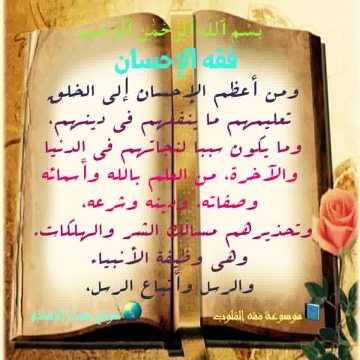 بسم الله الرحمن الرحيم
فقه الإحسان
ومن أعظم الإحسان إلى الخلق
تعليمهم ما ينفعهم في دينهم،
وما يكون سببا لنجاتهم في الدنيا
والآخرة، من العلم بالله وأسمائه
وصفاته، ودينه وشرعه،
وتحذيرهم مسالك الشر والهلكات.
وهي وظيفة الأنبياء
والرسل وأتباع الرسل،
موسوعة فقه القلوب